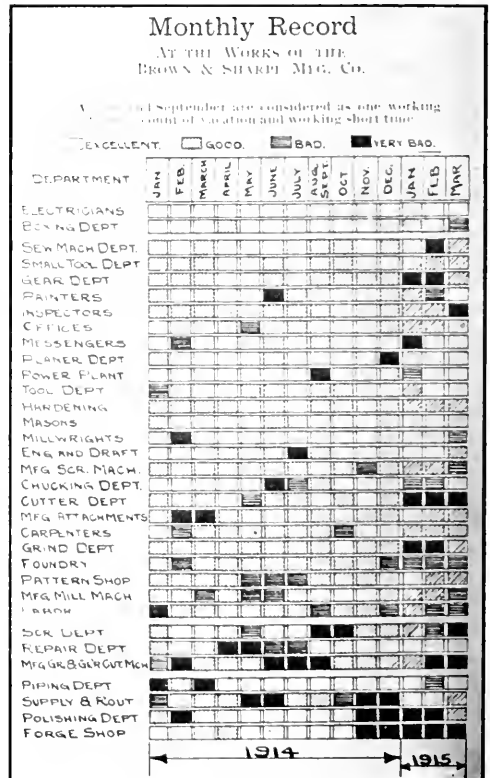 Monthly Record
AT THE WORKS OF THE
BROWN & SHARPE MFG. CO.
September are considered as one working
count of vacation and working short time
EXCELLENT. GOOD. BAD. VERY BAD.
DEPARTMENT JAN FEB. MARCH APRIL MAY JUNE JULY AUG. SEPT. OCT. NOV. DEC. JAN FEB MAR
ELECTRICIANS
BOXING DEPT
SEW MACH DEPT.
SMALL TOOL DEPT
GEAR DEPT
PAINTERS
INSPECTORS
OFFICES
MESSENGERS
PLANER DEPT
POWER PLANT
TOOL DEPT
HARDENING
MASONS
MILLWRIGHTS
ENG AND DRAFT
MFG SCR. MACH.
CHUCKING DEPT.
CUTTER DEPT
MFG ATTACHMENTS
CARPENTERS
GRIND DEPT
FOUNDRY
PATTERN SHOP
MFG MILL MACH
LABOR
SCR DEPT
REPAIR DEPT
MFG GR & G'L'R CUT MCH
PIPING DEPT
SUPPLY & R'OUT
POLISHING DEPT
FORGE SHOP
1914 1915